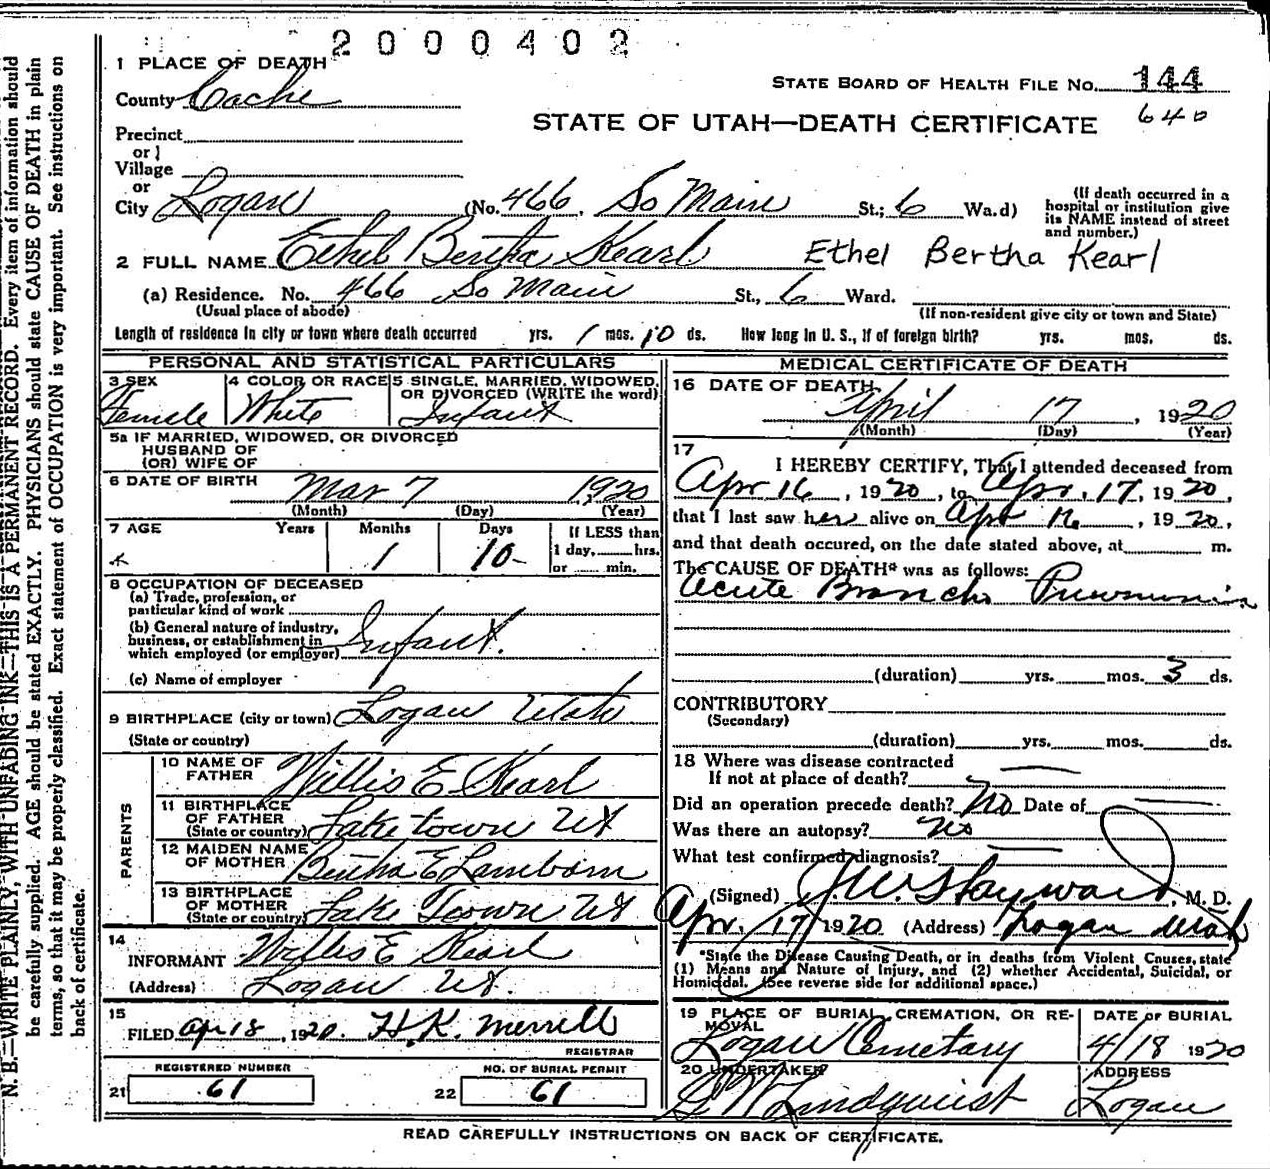 2000402
1 PLACE OF DEATH
STATE BOARD OF HEALTH FILE No. 144
County Cache
640
STATE OF UTAH—DEATH CERTIFICATE
Precinct
or
Village
or
City Logan (No. 466 So Main St.; 6 Wa.d)
(If death occurred in a hospital or institution give its NAME instead of street and number.)
2 FULL NAME Ethel Bertha Kearl Ethel Bertha Kearl
(a) Residence. No. 466 So Main St., 6 Ward.
(Usual place of abode) (If non-resident give city or town and State)
Length of residence in city or town where death occurred yrs. 1 mos. 10 ds. How long in U. S., if of foreign birth? yrs. mos. ds.
PERSONAL AND STATISTICAL PARTICULARS
3 SEX Female
4 COLOR OR RACE White
5 SINGLE, MARRIED, WIDOWED, OR DIVORCED (WRITE the word) Infant
5a IF MARRIED, WIDOWED, OR DIVORCED
HUSBAND OF
(OR) WIFE OF
6 DATE OF BIRTH Mar 7 1920
(Month) (Day) (Year)
7 AGE Years Months Days If LESS than
1 10 1 day, hrs.
or min.
8 OCCUPATION OF DECEASED
(a) Trade, profession, or
particular kind of work
(b) General nature of industry,
business, or establishment in
which employed (or employer) Infant.
(c) Name of employer
9 BIRTHPLACE (city or town) Logan Utah
(State or country)
PARENTS
10 NAME OF FATHER Willis E Kearl
11 BIRTHPLACE OF FATHER (State or country) Laketown Ut
12 MAIDEN NAME OF MOTHER Bertha E Lamborn
13 BIRTHPLACE OF MOTHER (State or country) Lake Town Ut
14
INFORMANT Willis E Kearl
(Address) Logan Ut.
15
FILED Apr 18, 1920. H.K. Merrell
REGISTRAR
REGISTERED NUMBER
21 61
NO. OF BURIAL PERMIT
22 61
MEDICAL CERTIFICATE OF DEATH
16 DATE OF DEATH April 17, 1920
(Month) (Day) (Year)
17
I HEREBY CERTIFY, That I attended deceased from
Apr 16, 1920, to Apr. 17, 1920,
that I last saw her alive on Apr 16, 1920,
and that death occured, on the date stated above, at m.
The CAUSE OF DEATH* was as follows:
Acute Broncho Pneumonia
(duration) yrs. mos. 3 ds.
CONTRIBUTORY
(Secondary)
(duration) yrs. mos. ds.
18 Where was disease contracted
If not at place of death?
Did an operation precede death? No Date of
Was there an autopsy? No
What test confirmed diagnosis?
(Signed) J.W. Hayward, M. D.
Apr. 17 1920 (Address) Logan Utah
*State the Disease Causing Death, or in deaths from Violent Causes, state
(1) Means and Nature of Injury, and (2) whether Accidental, Suicidal, or
Homicidal. (See reverse side for additional space.)
19 PLACE OF BURIAL, CREMATION, OR RE-
MOVAL
Logan Cemetary
DATE or BURIAL
4/18 1920
20 UNDERTAKER
G W Lindquist
ADDRESS
Logan
READ CAREFULLY INSTRUCTIONS ON BACK OF CERTIFICATE.
N. B.—WRITE PLAINLY, WITH UNFADING INK—THIS IS A PERMANENT RECORD. Every item of information should
be carefully supplied. AGE should be stated EXACTLY. PHYSICIANS should state CAUSE OF DEATH in plain
terms, so that it may be properly classified. Exact statement of OCCUPATION is very important. See instructions on
back of certificate.